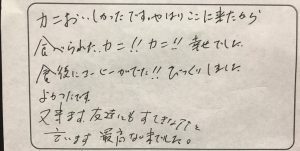 カニおいしかったです。やはりここに来たから
食べられた、カニ!! カニ!! 幸せでした。
食後にコーヒーがでた!! びっくりしました
よかったです
又来ます。友達にもすてきな
言います 最高な でした。